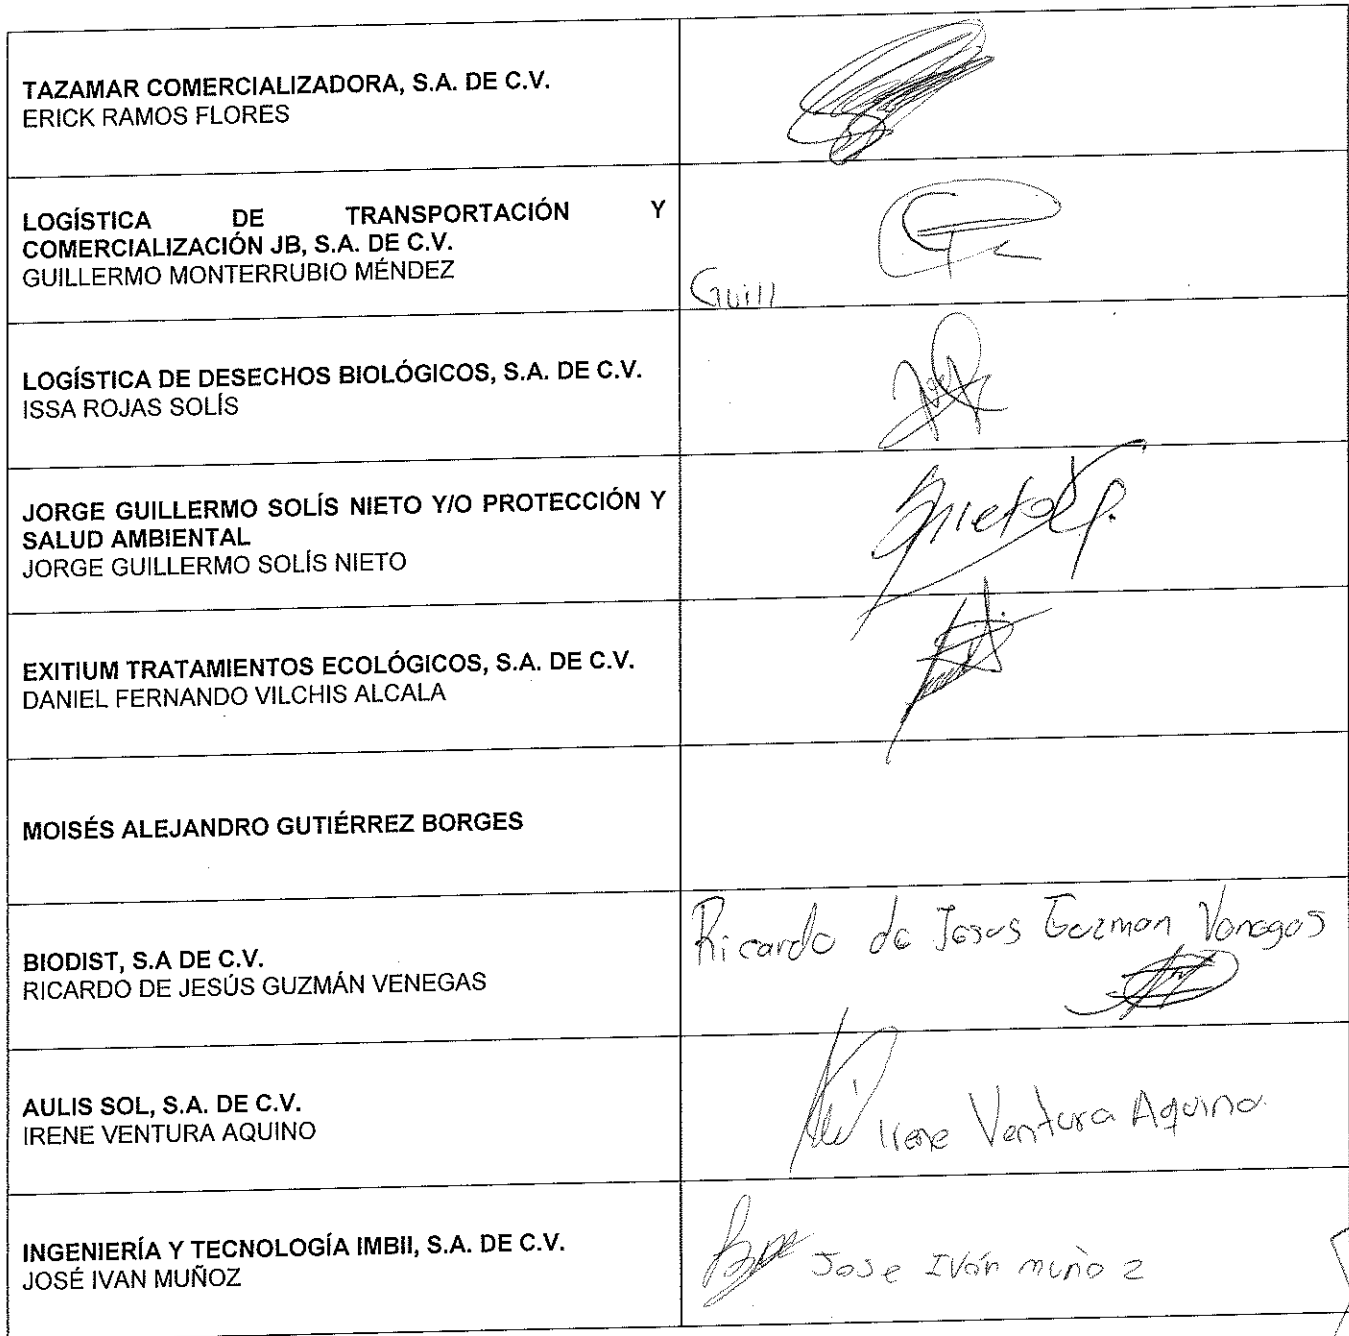 TAZAMAR COMERCIALIZADORA, S.A. DE C.V.
ERICK RAMOS FLORES
LOGÍSTICA DE TRANSPORTACIÓN Y
COMERCIALIZACIÓN JB, S.A. DE C.V.
GUILLERMO MONTERRUBIO MÉNDEZ
Guill
LOGÍSTICA DE DESECHOS BIOLÓGICOS, S.A. DE C.V.
ISSA ROJAS SOLÍS
JORGE GUILLERMO SOLÍS NIETO Y/O PROTECCIÓN Y
SALUD AMBIENTAL
JORGE GUILLERMO SOLÍS NIETO
EXITIUM TRATAMIENTOS ECOLÓGICOS, S.A. DE C.V.
DANIEL FERNANDO VILCHIS ALCALA
MOISÉS ALEJANDRO GUTIÉRREZ BORGES
BIODIST, S.A DE C.V.
RICARDO DE JESÚS GUZMÁN VENEGAS
Ricardo de Jesus Guzman Venegas
AULIS SOL, S.A. DE C.V.
IRENE VENTURA AQUINO
Irene Ventura Aquino.
INGENIERÍA Y TECNOLOGÍA IMBII, S.A. DE C.V.
JOSÉ IVAN MUÑOZ
Jose Iván muñoz